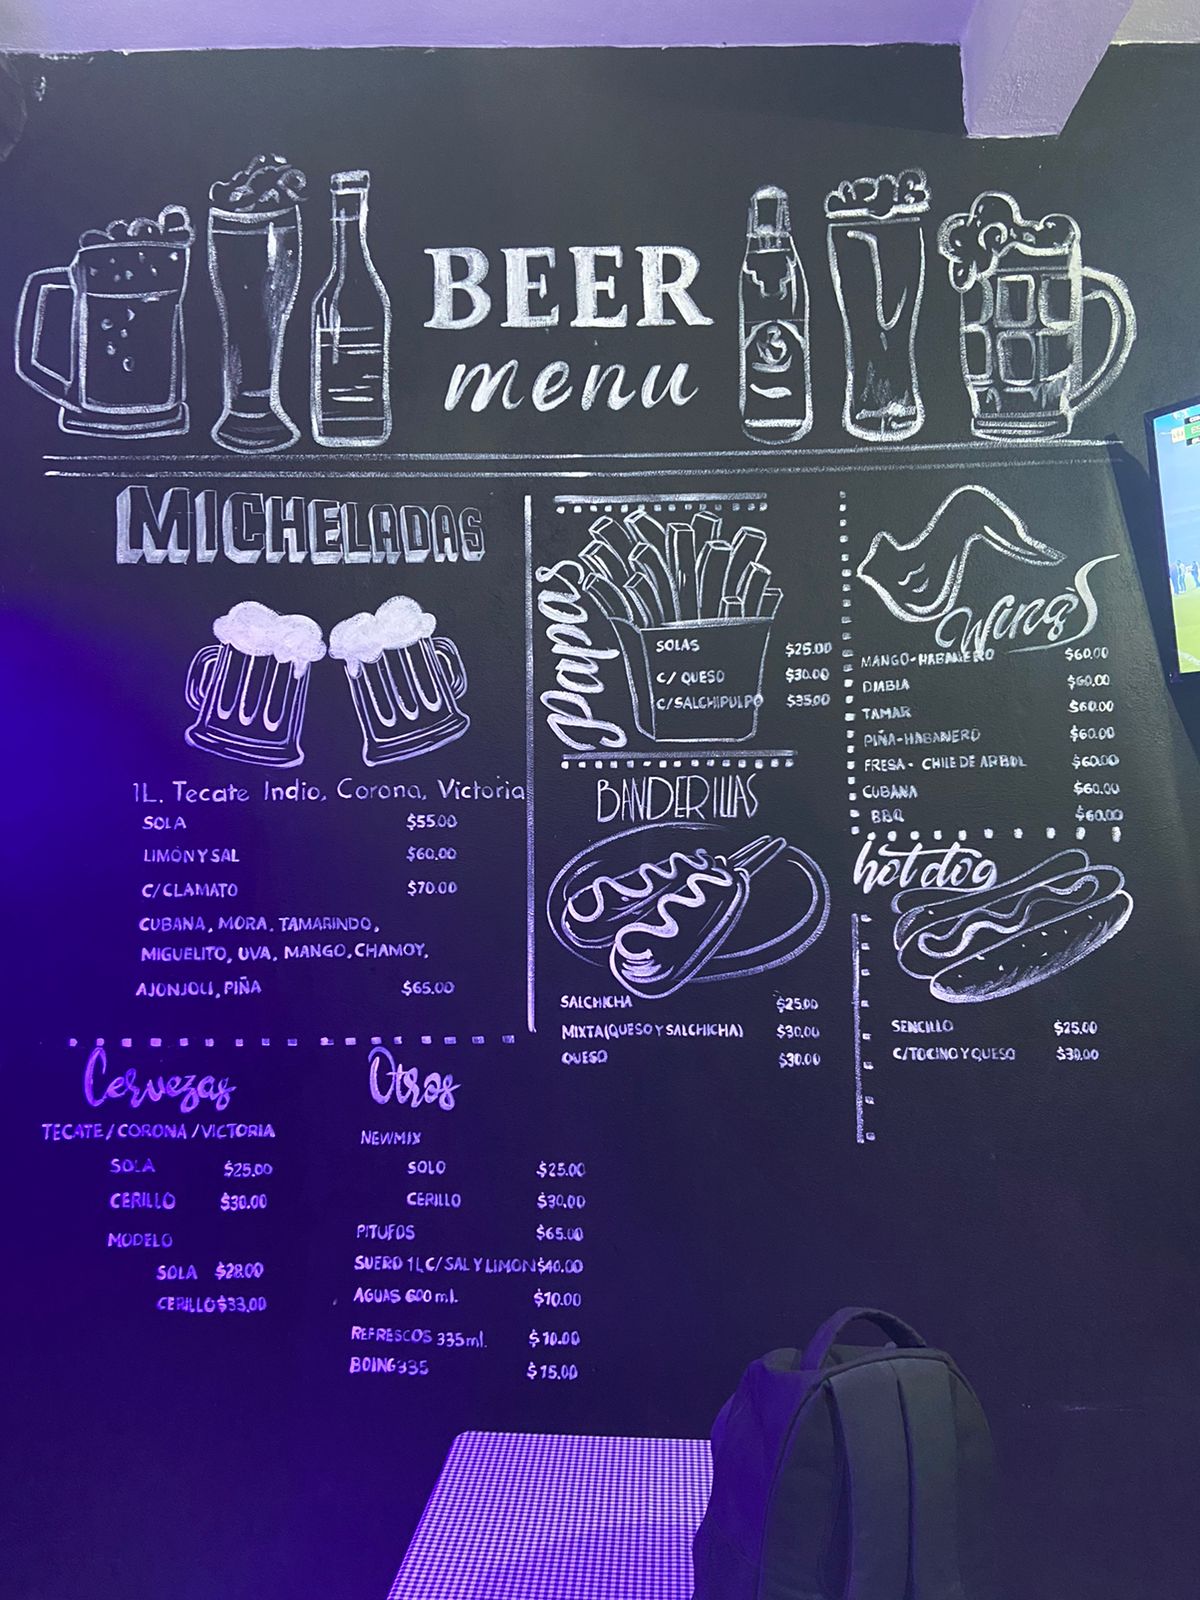 BEER
menu
MICHELADAS
1L. Tecate Indio, Corona, Victoria
SOLA $55.00
LIMÓN Y SAL $60.00
C/CLAMATO $70.00
CUBANA, MORA, TAMARINDO,
MIGUELITO, UVA, MANGO, CHAMOY,
AJONJOLI, PIÑA $65.00
Papas
SOLAS $25.00
C/ QUESO $30.00
C/SALCHIPULPO $35.00
BANDERILLAS
SALCHICHA $25.00
MIXTA(QUESO Y SALCHICHA) $30.00
QUESO $30.00
Wings
MANGO-HABANERO $60.00
DIABLA $60.00
TAMAR $60.00
PIÑA-HABANERO $60.00
FRESA- CHILE DE ARBOL $60.00
CUBANA $60.00
BBQ $60.00
hot dog
SENCILLO $25.00
C/TOCINO Y QUESO $30.00
Cervezas
TECATE/CORONA/VICTORIA
SOLA $25.00
CERILLO $30.00
MODELO
SOLA $28.00
CERILLO $33.00
Otros
NEWMIX
SOLO $25.00
CERILLO $30.00
PITUFOS $65.00
SUERO 1L C/ SAL Y LIMON $40.00
AGUAS 600 ml. $10.00
REFRESCOS 335ml. $10.00
BOING 335 $15.00